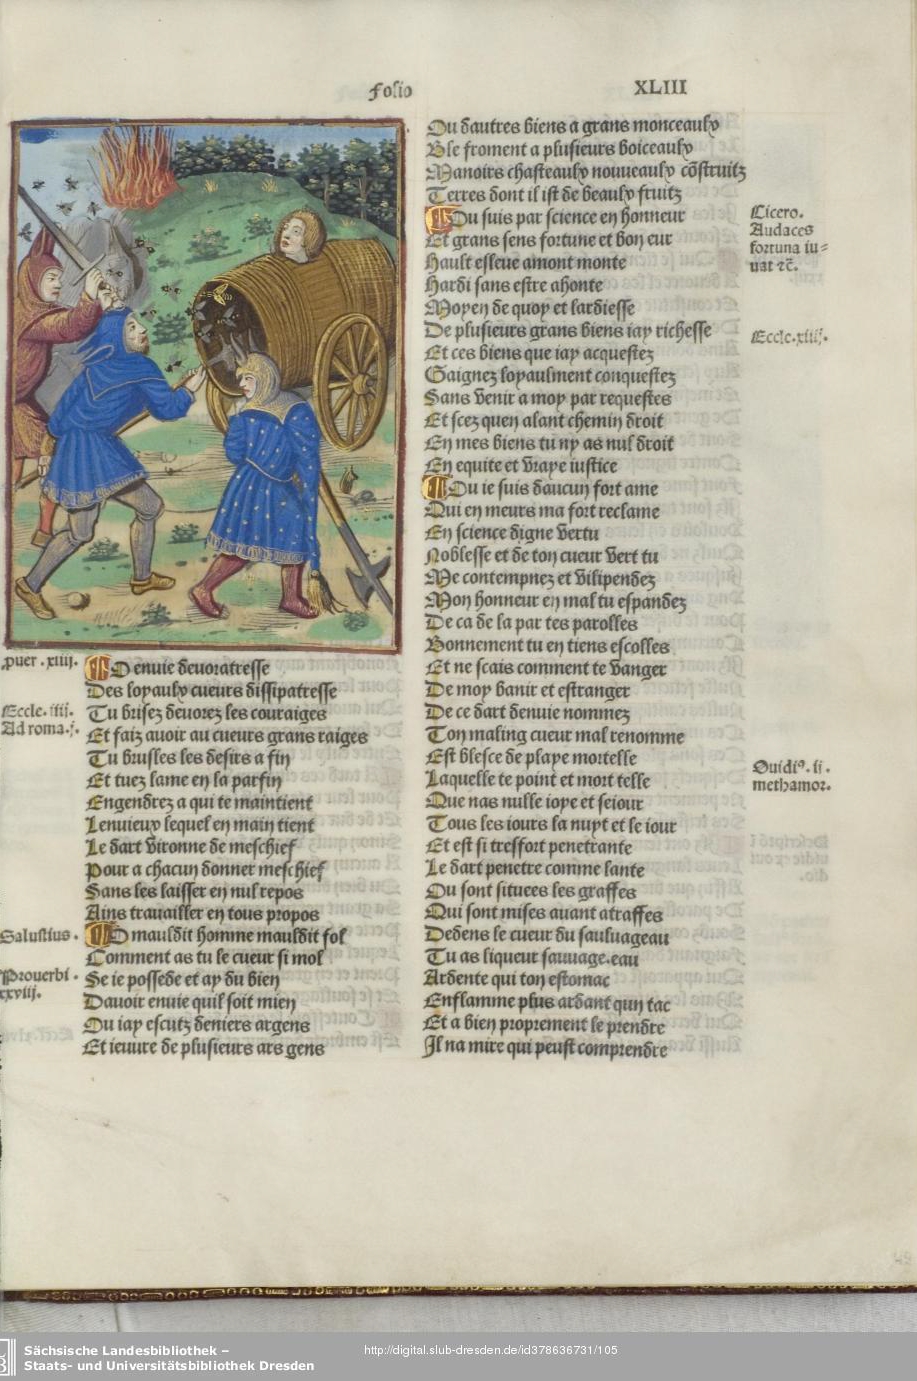 Folio
XLIII
Puer. xiiij.
O enuie deuoratresse
Des loyaulx cueurs dissipatresse
Eccle. iiij.
Tu brisez deuorez les couraiges
Ad roma. j.
Et faiz auoir au cueurs grans raiges
Tu brusles les desirs a fin
Et tuez lame en la parfin
Engendrez a qui te maintient
Lenuieux lequel en main tient
Le dart vironne de meschief
Pour a chacun donner meschief
Sans les laisser en nul repos
Ains trauailler en tous propos
Salustius.
O mauldit homme mauldit fol
Comment as tu le cueur si mol
Prouerbi.
xxviij.
Se ie possede et ay du bien
Dauoir enuie quil soit mien
Ou iay escutz deniers argens
Et ieuure de plusieurs ars gens
Ou dautres biens a grans monceaulx
Ble froment a plusieurs boiceaulx
Manoirs chasteaulx nouueaulx cõstruitz
Terres dont il ist de beaulx fruitz
Cicero.
Audaces
fortuna iu=
uat ⁊c̃.
Ou suis par science en honneur
Et grans sens fortune et bon eur
Hault esleue amont monte
Hardi sans estre ahonte
Moyen de quoy et lardiesse
De plusieurs grans biens iay richesse
Eccle. xiiij.
Et ces biens que iay acquestez
Gaignez loyaulment conquestez
Sans venir a moy par requestes
Et scez quen alant chemin droit
En mes biens tu ny as nul droit
En equite et vraye iustice
Ou ie suis daucun fort ame
Qui en meurs ma fort reclame
En science digne vertu
Noblesse et de ton cueur vert tu
Me contempnez et vilipendez
Mon honneur en mal tu espandez
De ca de la par tes parolles
Bonnement tu en tiens escolles
Et ne scais comment te vanger
De moy banir et estranger
De ce dart denuie nommez
Ton maling cueur mal renomme
Est blesce de playe mortelle
Ouidiꝰ. ij.
methamor.
Laquelle te point et mort telle
Que nas nulle ioye et seiour
Tous les iours la nuyt et le iour
Et est si tresfort penetrante
Le dart penetre comme lante
Ou sont situees les graffes
Qui sont mises auant atraffes
Dedens le cueur du sauluageau
Tu as liqueur sauuage.eau
Ardente qui ton estomac
Enflamme plus ardant qun tac
Et a bien proprement le prendre
Il na mire qui peust comprendre
Sächsische Landesbibliothek –
Staats- und Universitätsbibliothek Dresden
http://digital.slub-dresden.de/id378636731/105